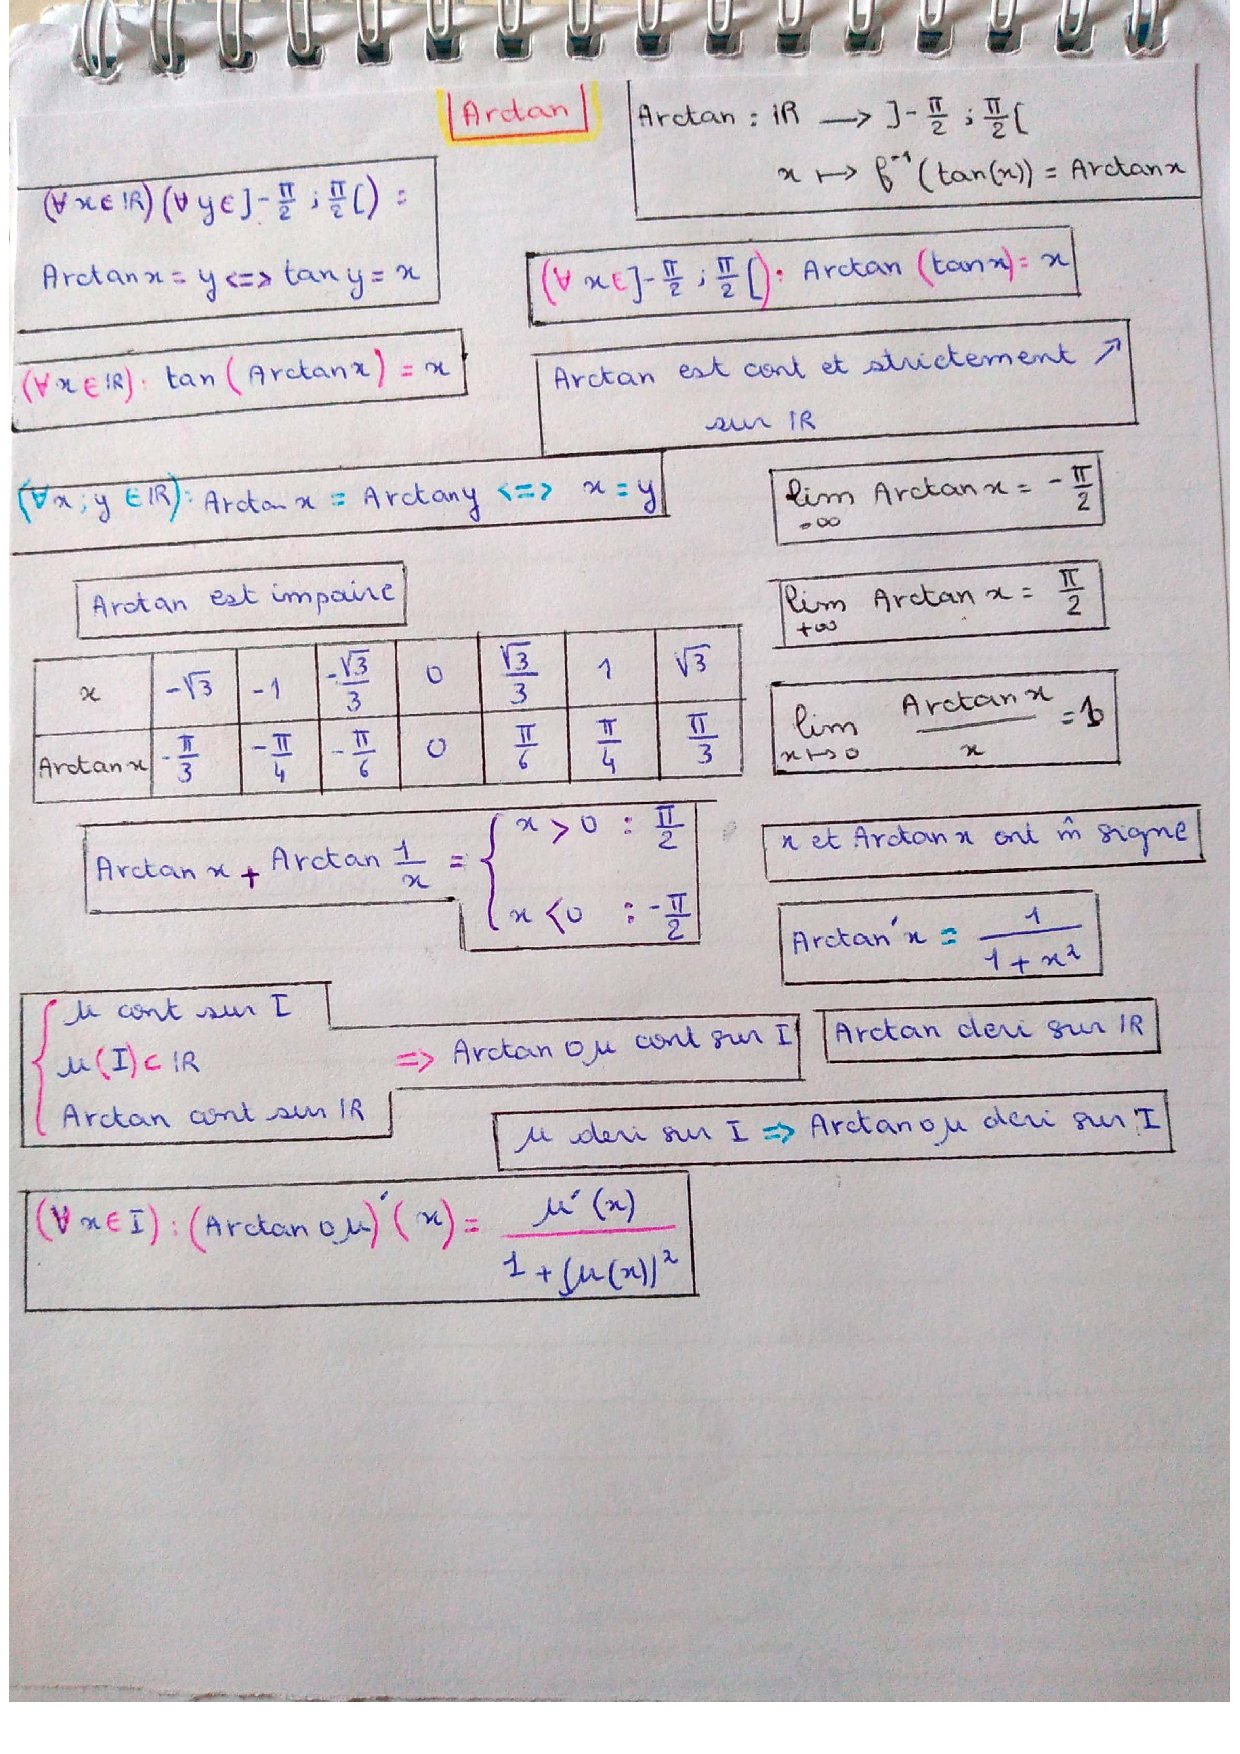 Arctan
Arctan : IR → ]-π/2 ; π/2[
x ↦ f⁻¹(tan(x)) = Arctan x
(∀x∈IR)(∀y∈]-π/2 ; π/2[) :
Arctan x = y <=> tan y = x
(∀x∈]-π/2 ; π/2[) : Arctan (tan x) = x
(∀x∈IR) : tan (Arctan x) = x
Arctan est cont et strictement ↗
sur IR
(∀x ; y ∈IR) : Arctan x = Arctan y <=> x = y
lim Arctan x = -π/2
-∞
Arctan est impaire
lim Arctan x = π/2
+∞
x | -√3 | -1 | -√3/3 | 0 | √3/3 | 1 | √3
Arctan x | -π/3 | -π/4 | -π/6 | 0 | π/6 | π/4 | π/3
lim Arctan x / x = 1
x↦0
Arctan x + Arctan 1/x = { x > 0 : π/2
x < 0 : -π/2
x et Arctan x ont m̂ signe
Arctan'x = 1/(1+x²)
{ µ cont sur I
µ(I) ⊂ IR => Arctan o µ cont sur I
Arctan cont sur IR
Arctan deri sur IR
µ deri sur I => Arctan o µ deri sur I
(∀x∈I) : (Arctan o µ)'(x) = µ'(x) / 1 + (µ(x))²